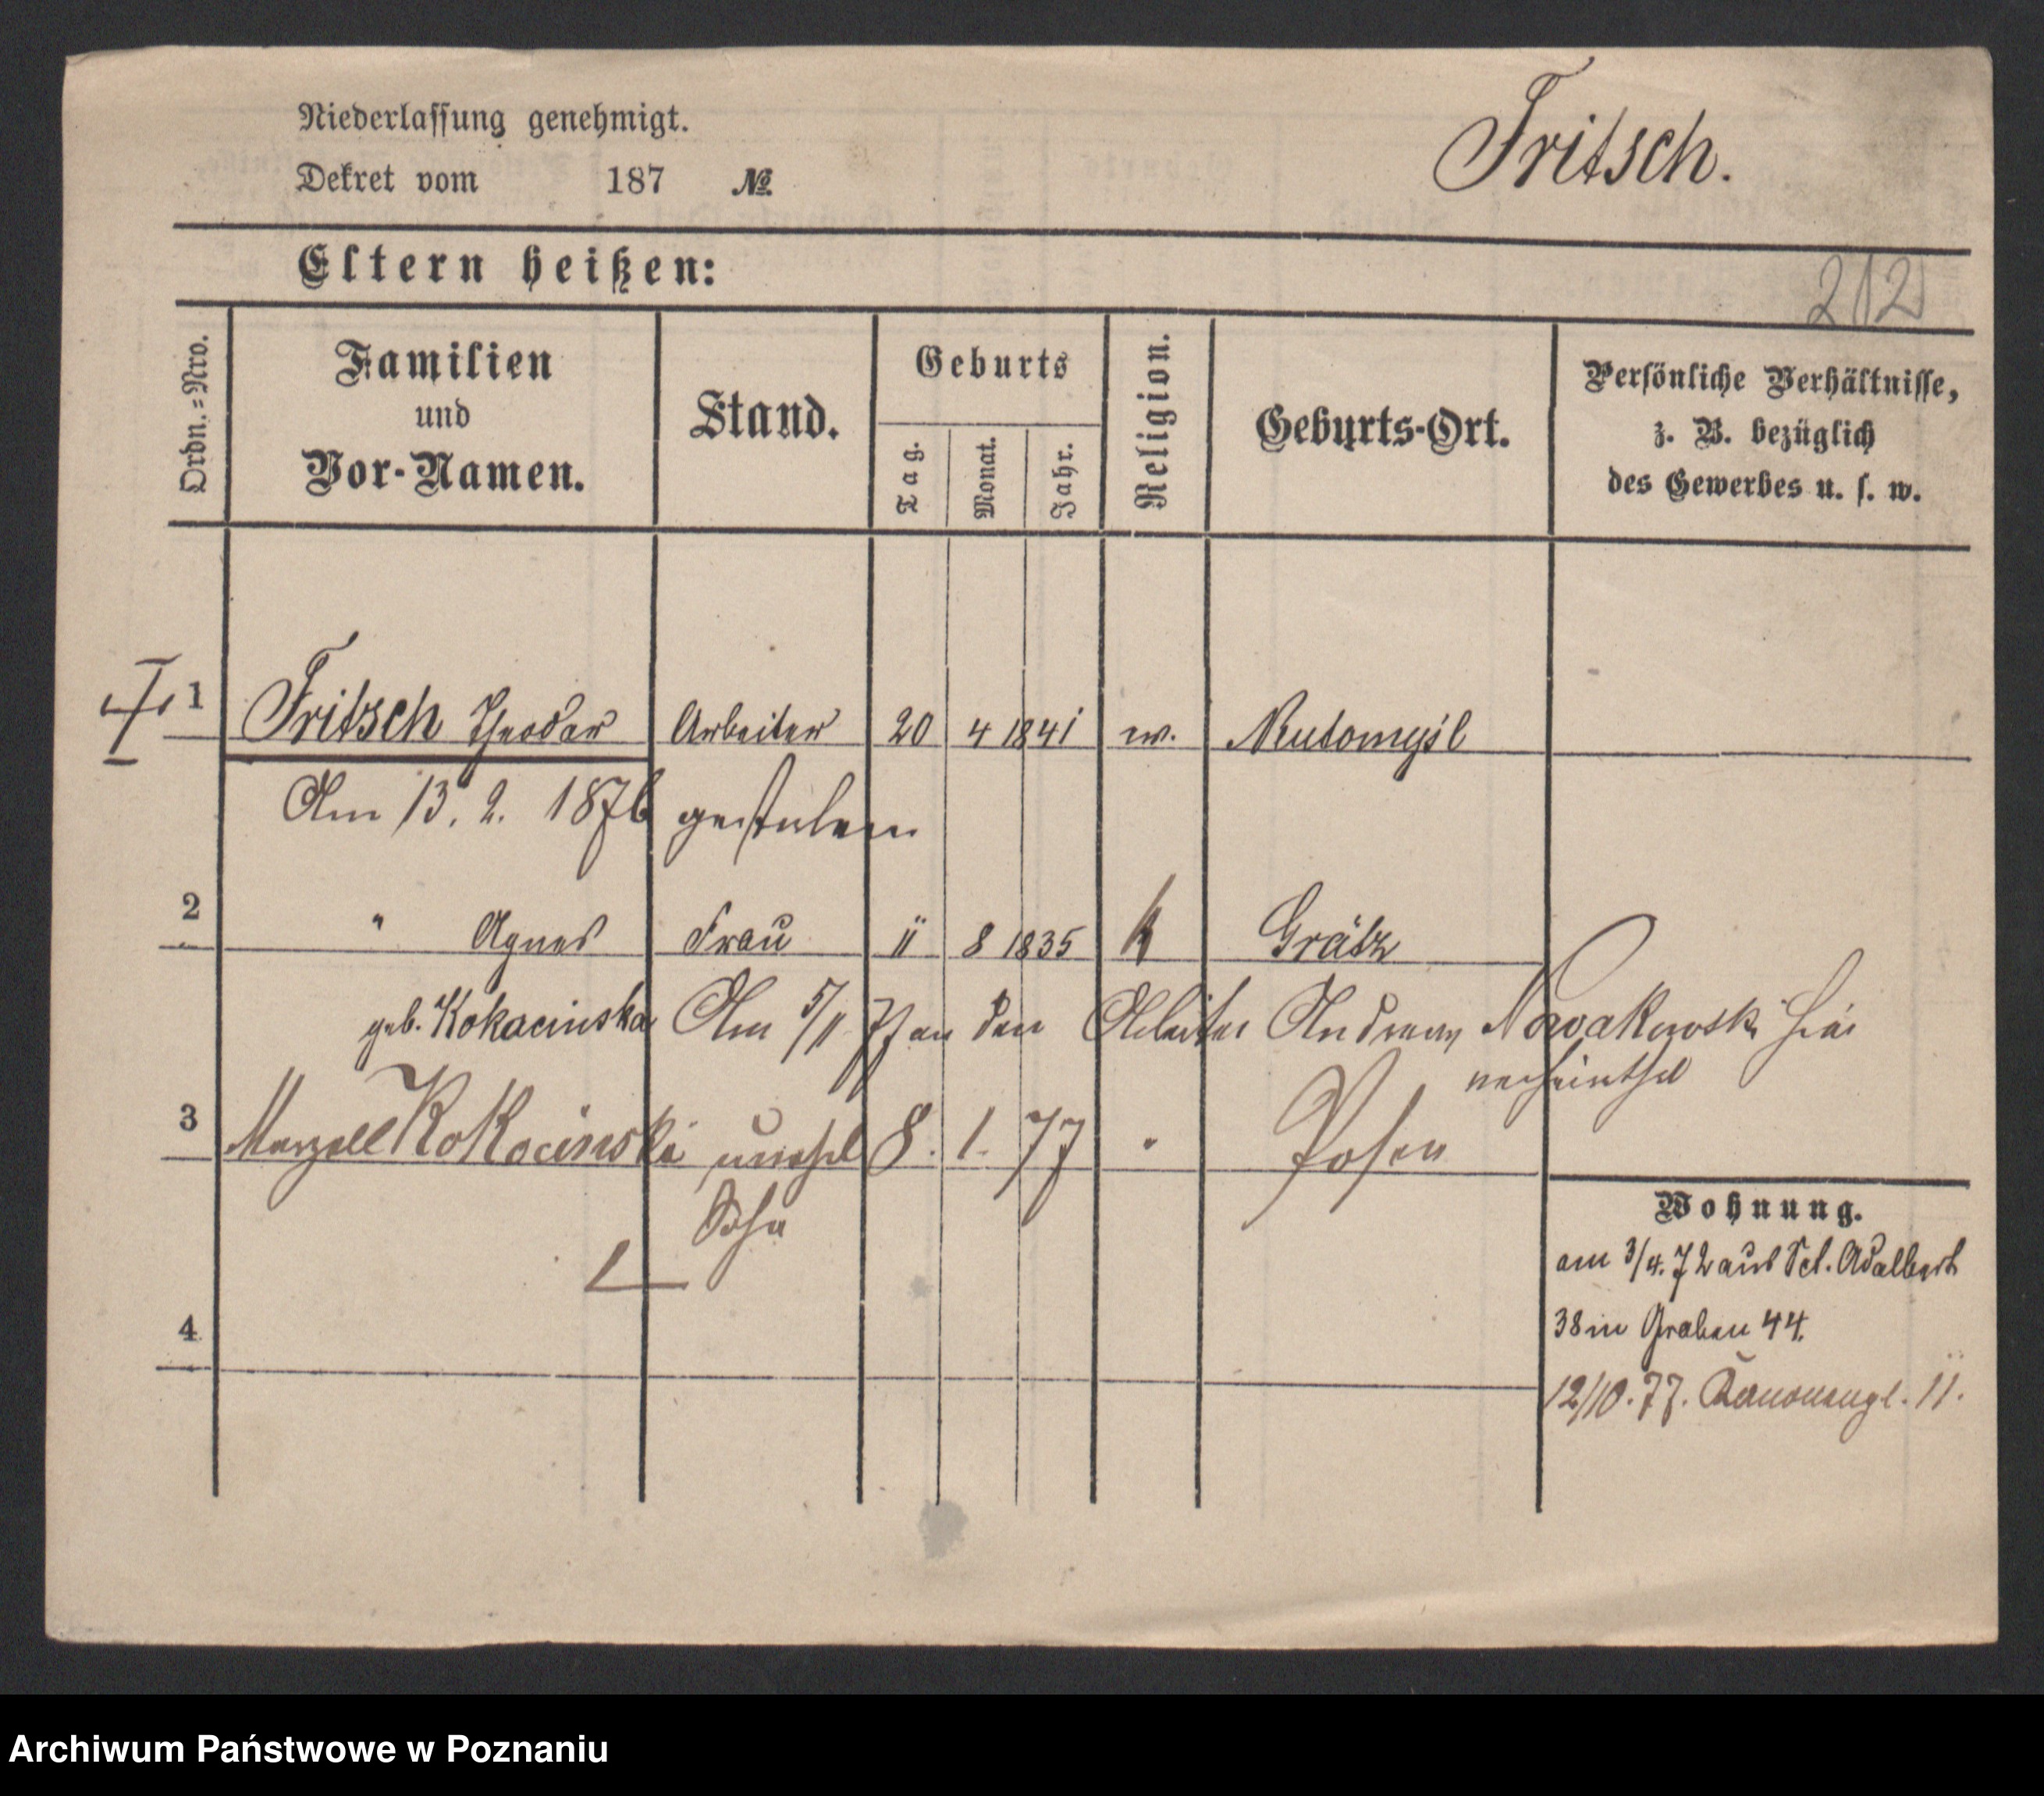 Niederlassung genehmigt.
Dekret vom 187 №
Fritsch.
Eltern heißen:
212
Ordn.=Nro.
Familien
und
Vor-Namen.
Stand.
Geburts
Tag.
Monat.
Jahr.
Religion.
Geburts-Ort.
Persönliche Verhältnisse,
z. B. bezüglich
des Gewerbes u. s. w.
1 Fritsch Theodor Arbeiter 20 4 1841 ev. Neutomysl
Am 13. 2. 1876 gestorben
2 " Agnes Frau 11 8 1835 k Grätz
geb. Kokacinska Am 5/11 77 an den Arbeiter Andreas Nowakowski hier
verheirathet
3 Marzell Kokocinski unehel 8. 1. 77 " Posen
Sohn
Wohnung.
am 3/4. 72 aus Sct. Adalbert
38 in Graben 44.
4
12/10. 77. Kanonengl. 11.
Archiwum Państwowe w Poznaniu